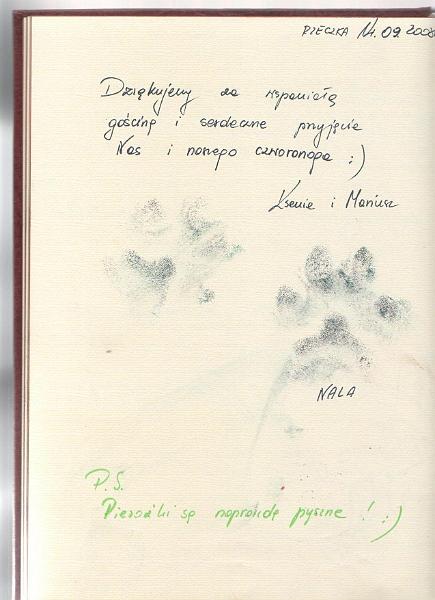 RZECZKA 14.09.2008
Dziękujemy za wspaniałą
gościnę i serdeczne przyjęcie
Nas i naszego czworonoga :)
Ksenia i Mariusz
NALA
P.S.
Pierożki są naprawdę pyszne ! :)